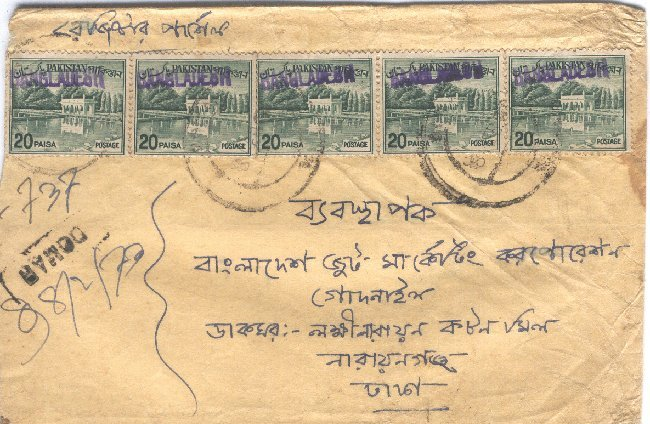 রেজিষ্টার পার্সেল
PAKISTAN পাকিস্তান پاکستان BANGLADESH 20 PAISA POSTAGE
PAKISTAN পাকিস্তান پاکستان BANGLADESH 20 PAISA POSTAGE
PAKISTAN পাকিস্তান پاکستان BANGLADESH 20 PAISA POSTAGE
PAKISTAN পাকিস্তান پاکستان BANGLADESH 20 PAISA POSTAGE
PAKISTAN পাকিস্তান پاکستان BANGLADESH 20 PAISA POSTAGE
737
DOMAR
ব্যবস্থাপক
বাংলাদেশ জুট মার্কেটিং করপোরেশন
গোদনাইল
ডাকঘর:- লক্ষীনারায়ন কটন মিল
নারায়নগঞ্জ
ঢাকা